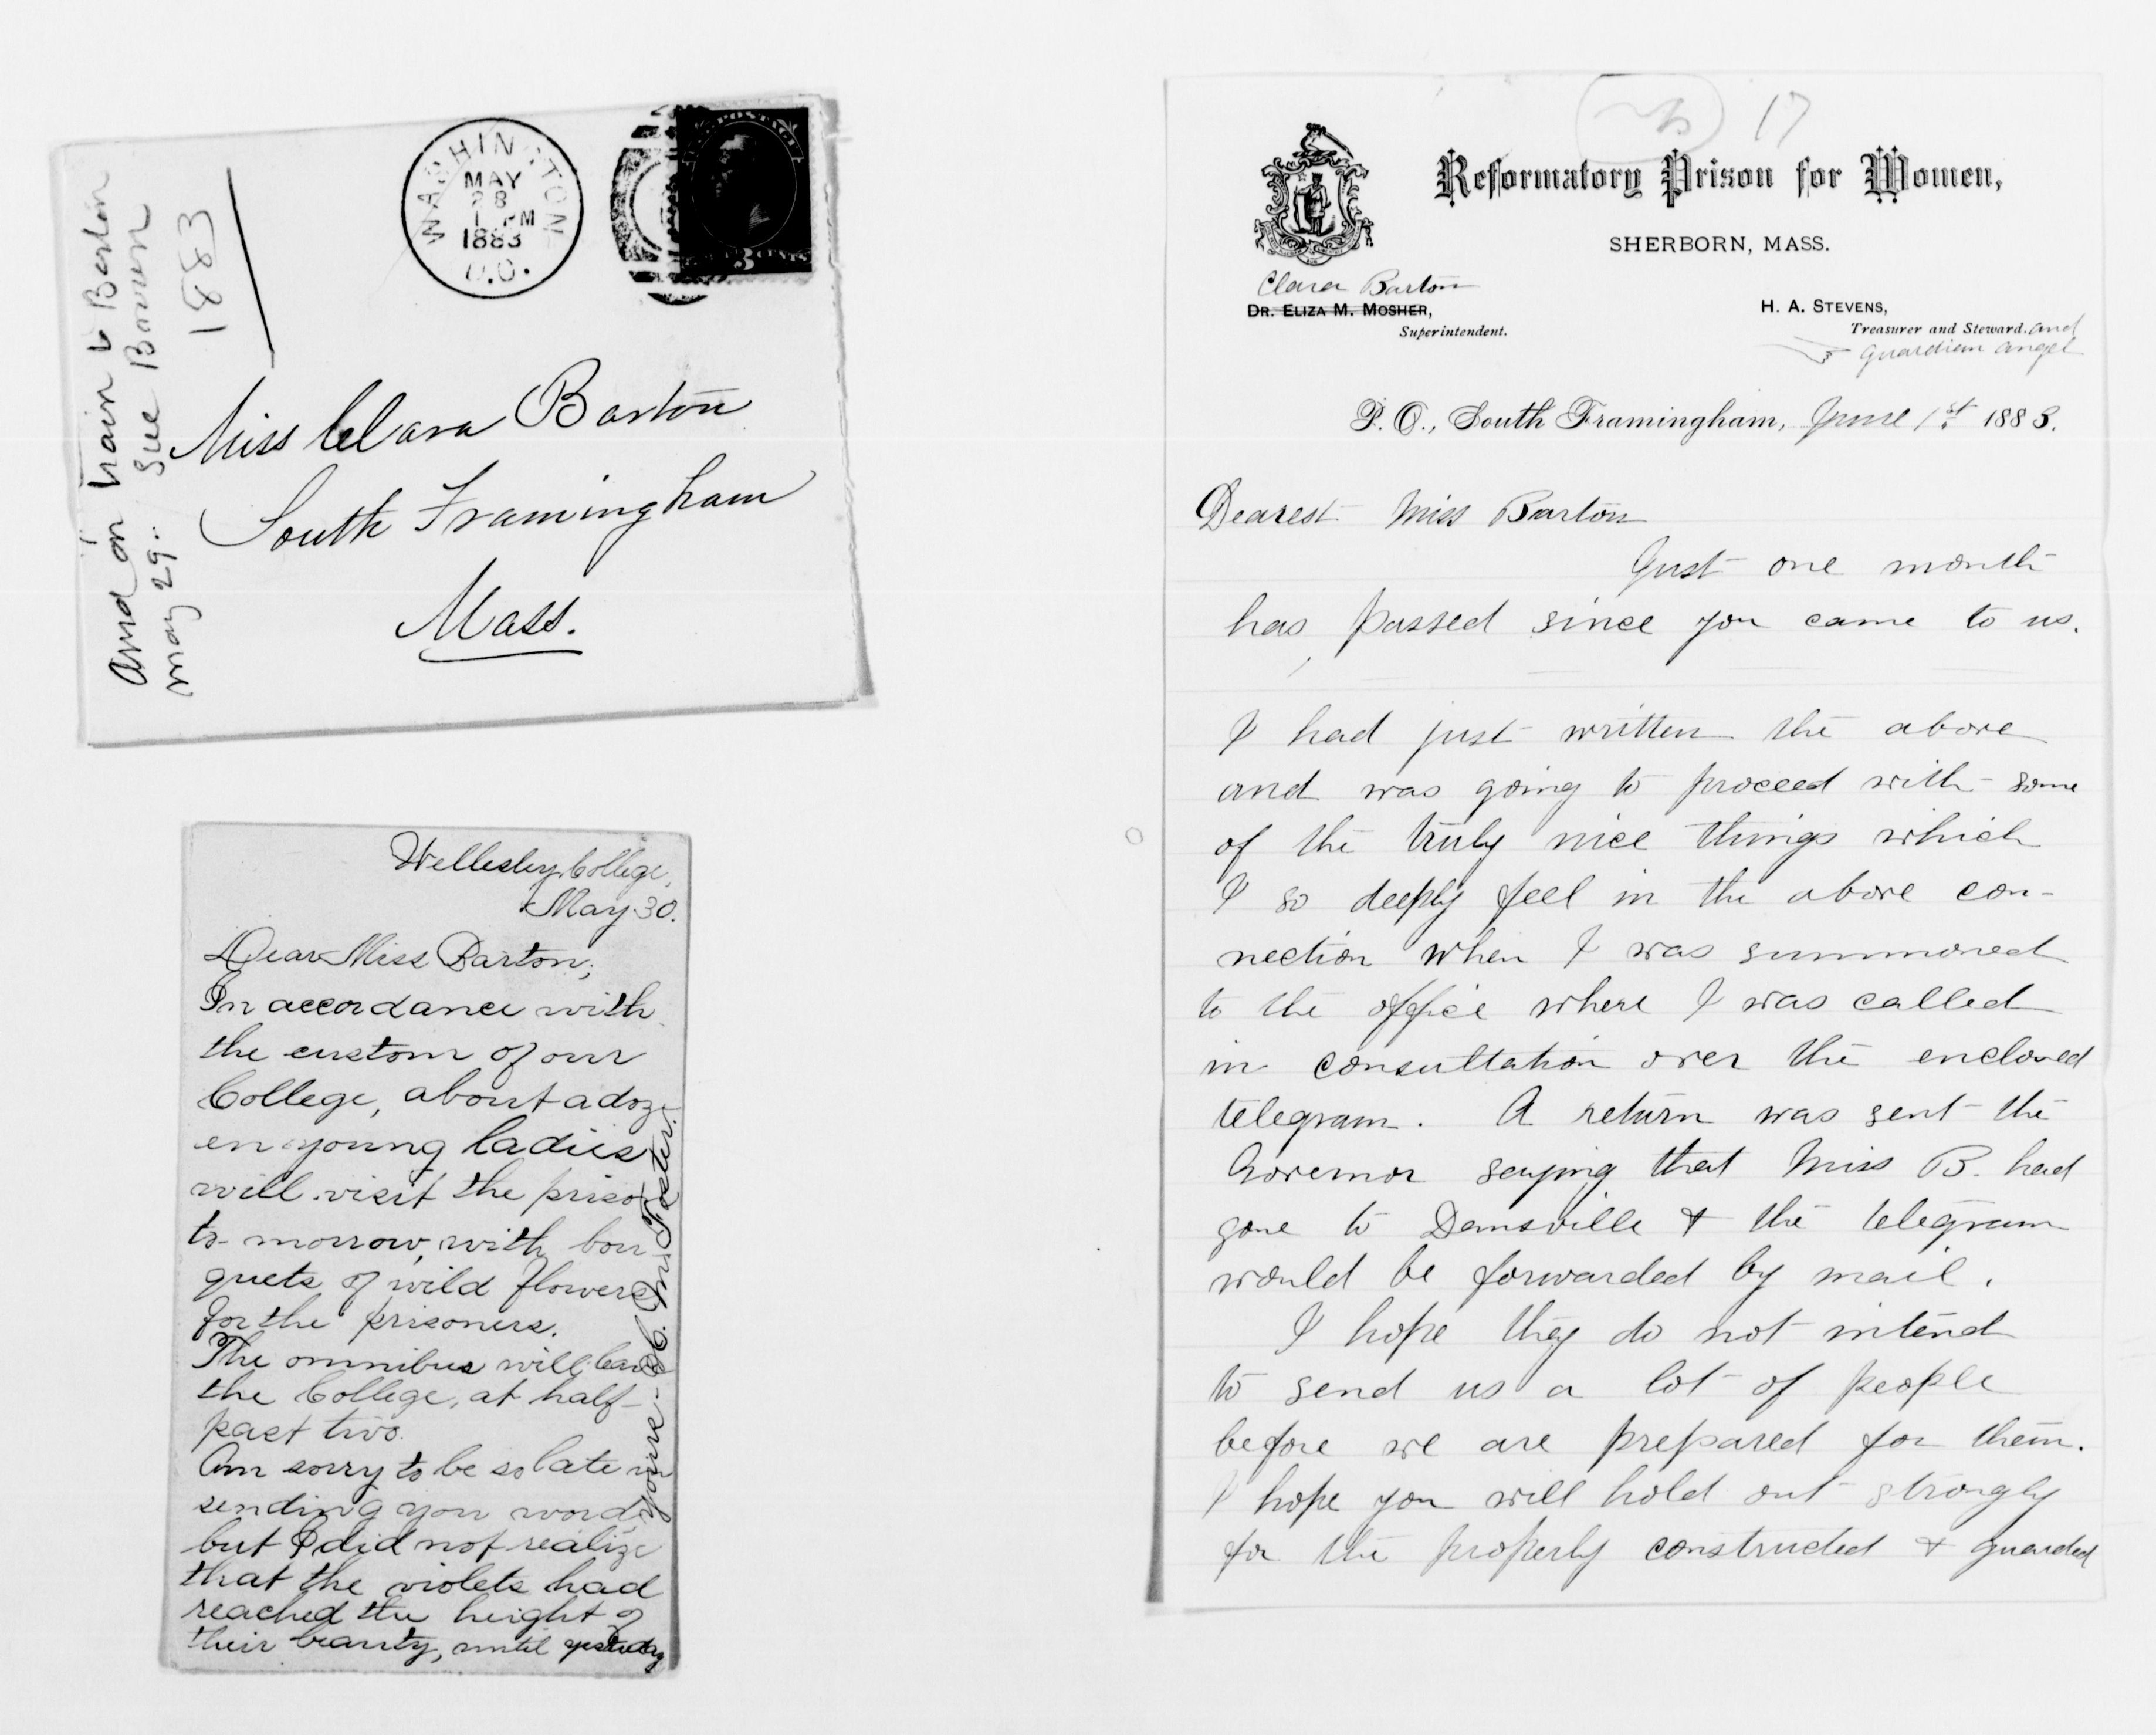 And on train to Boston
May 29.. See Bowen
1883
WASHINGTON
MAY
28
1 PM
1883
D.C.
POSTAGE
3 CENTS
Miss Clara Barton
South Framingham
Mass.
Wellesley College,
May 30.
Dear Miss Barton;
In accordance with
the custom of our
College, about a doz-
en young ladies
will visit the prison
to-morrow, with bou
quets of wild flowers
for the prisoners.
The omnibus will leave
the College, at half-
past two.
Am sorry to be so late in
sending you word,
but I did not realize
that the violets had
reached the height of
their beauty, until yesterday
yours-
17
Reformatory Prison for Women,
SHERBORN, MASS.
Clara Barton
DR. ELIZA M. MOSHER,
Superintendent.
H. A. STEVENS,
Treasurer and Steward. and
Guardian angel
P. O., South Framingham, June 1st 1883.
Dearest Miss Barton
Just one month
has passed since you came to us.
I had just written the above
and was going to proceed with some
of the truly nice things which
I so deeply feel in the above con-
nection when I was summoned
to the office where I was called
in consultation over the enclosed
telegram. A return was sent the
Governor saying that Miss B. had
gone to Dansville & the telegram
would be forwarded by mail.
I hope they do not intend
to send us a lot of people
before we are prepared for them.
I hope you will hold out strongly
for the properly constructed & guarded